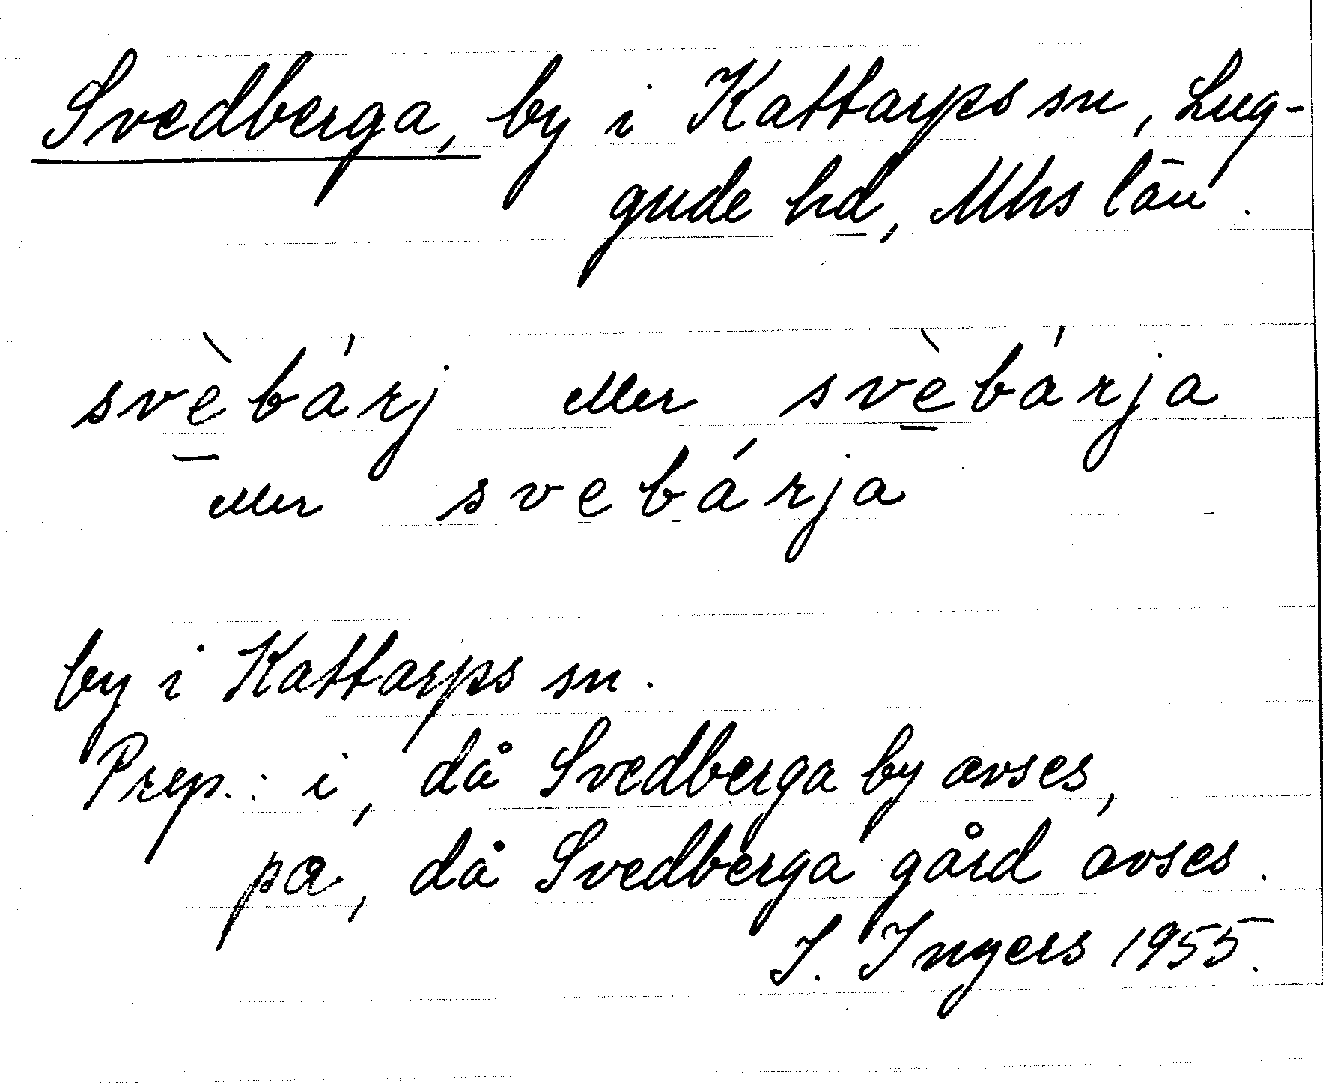 Svedberga, by i Kattarps sn, Lug-
gude hd, Mhs län.
svèbárj eller svèbárja
eller svebárja
by i Kattarps sn.
Prep.: i, då Svedberga by avses,
pa, då Svedberga gård avses.
I. Ingers 1955.